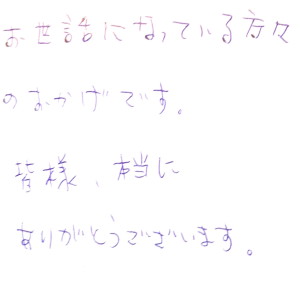 お世話になっている方々
のおかげです。
皆様、本当に
ありがとうございます。